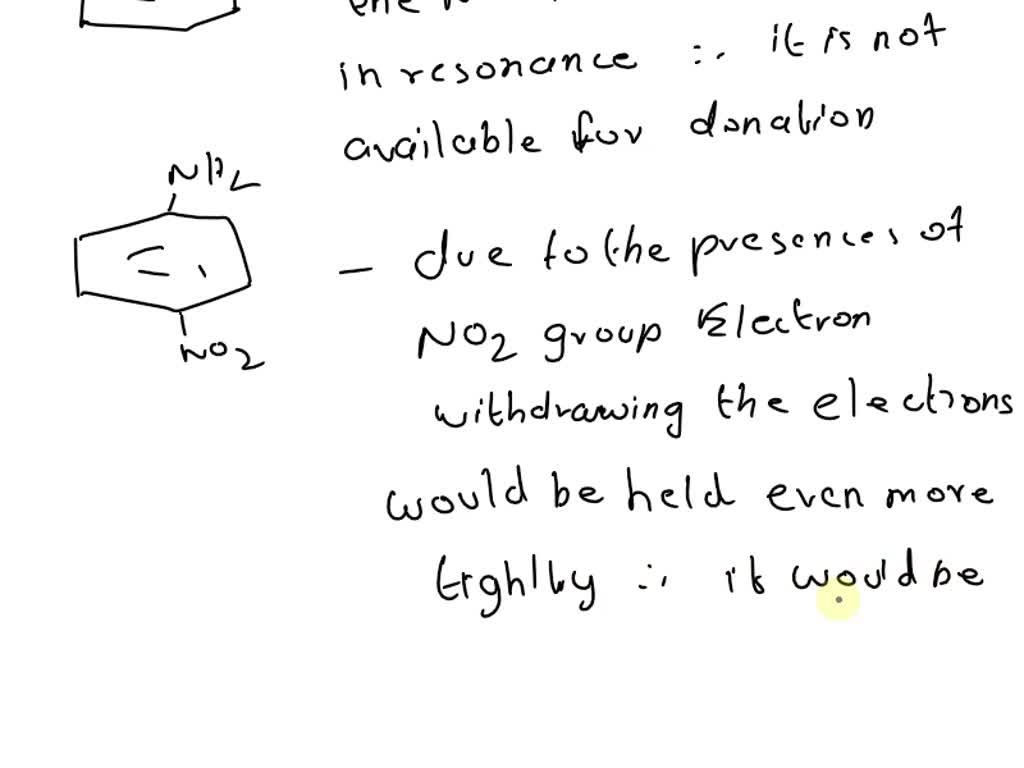 the
in resonance ∴ it is not
available for donation
NH2
- due to the presences of
NO2 group Electron
NO2
withdrawing the elections
would be held even more
tightly ∴ it would be